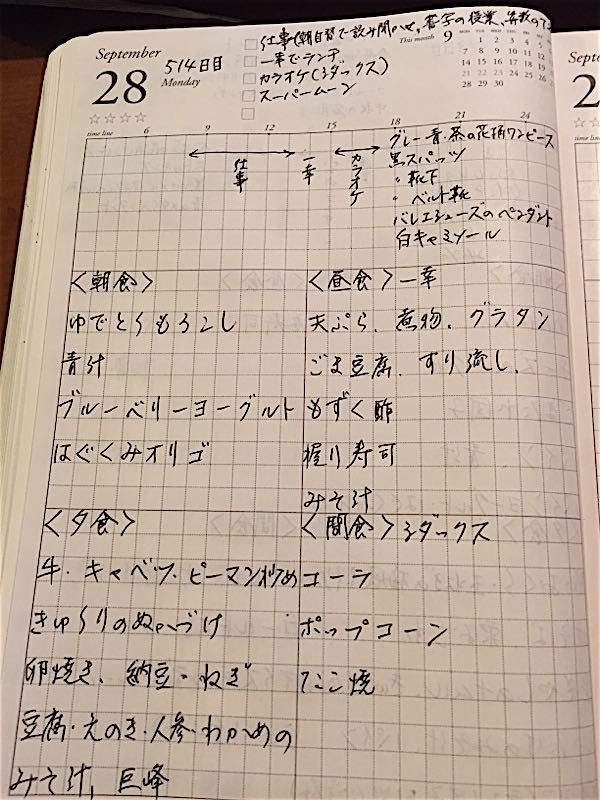 September
28
514日目
Monday
仕事(朝自習で読み聞かせ、書写の授業、算数の
一幸でランチ
カラオケ(シダックス)
スーパームーン
This month 9
MON TUE WED THU FRI SAT SUN
1 2 3 4 5
7 8 9 10 11 12
14 15 16 17 18 19
21 22 23 24 25 26
28 29 30
time line 6 9 12 15 18 21 24
仕事
一幸
カラオケ
グレー・青・茶の花柄ワンピース
黒スパッツ
〃 靴下
〃 ベルト靴
バレエシューズのペンダント
白キャミソール
<朝食>
ゆでとうもろこし
青汁
ブルーベリーヨーグルト
はぐくみオリゴ
<昼食>一幸
天ぷら、煮物、グラタン
ごま豆腐、すり流し、
もずく酢
握り寿司
みそ汁
<夕食>
牛・キャベツ・ピーマン炒め
きゅうりのぬかづけ
卵焼き、納豆・ねぎ
豆腐・えのき・人参・わかめの
みそ汁、巨峰
<間食>シダックス
コーラ
ポップコーン
たこ焼
2